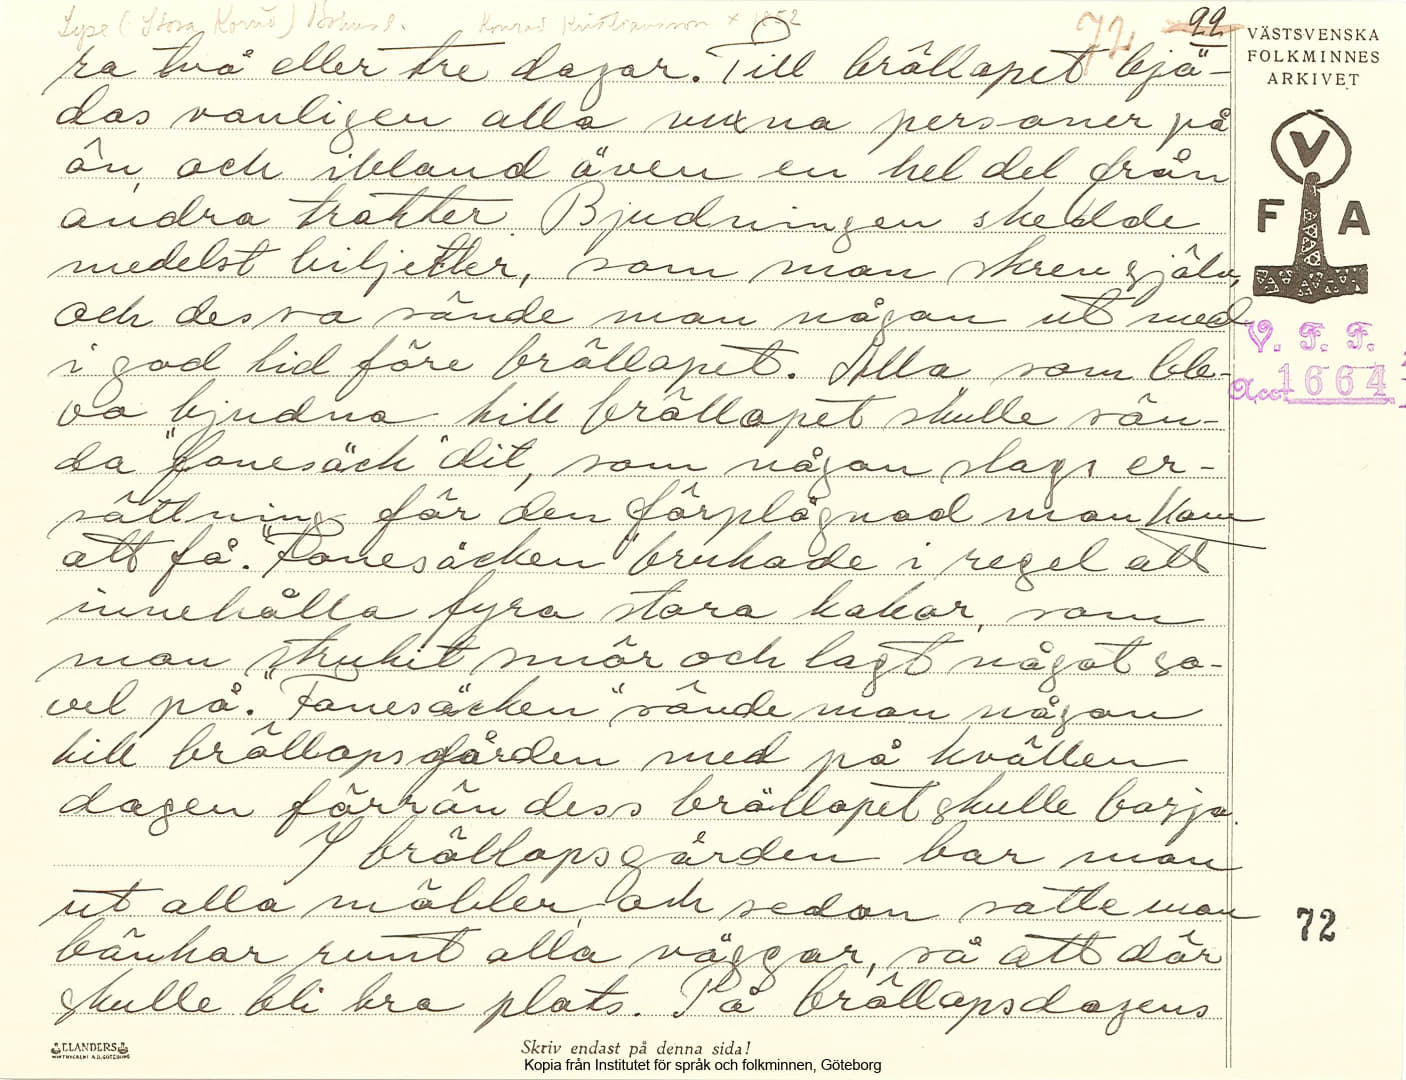 Lyse (Stora Kornö) Bohusl. Konrad Kristiansson * 1852
72 22
VÄSTSVENSKA
FOLKMINNES
ARKIVET
V
F A
V. F. F.
Acc 1664
ra två eller tre dagar. Till bröllopet bjö-
das vanligen alla vuxna personer på
ön, och ibland även en hel del från
andra trakter. Bjudningen skedde
medelst biljetter, som man skrev själv,
och dessa sände man någon ut med
i god tid före bröllopet. Alla, som ble-
vo bjudna till bröllopet skulle sän-
da "fonesäck" dit, som någon slags er-
sättning för den förplägnad man kom
att få. "Fonesäcken" brukade i regel att
innehålla fyra stora kakor, som
man strukit smör och lagt något so-
vel på. "Fonesäcken" sände man någon
till bröllopsgården med på kvällen
dagen förrän dess bröllopet skulle börja.
I bröllopsgården bar man
ut alla möbler, och sedan satte man
bänkar runt alla väggar, så att där
skulle bli bra plats. På bröllopsdagens
72
ELANDERS
Skriv endast på denna sida!
Kopia från Institutet för språk och folkminnen, Göteborg